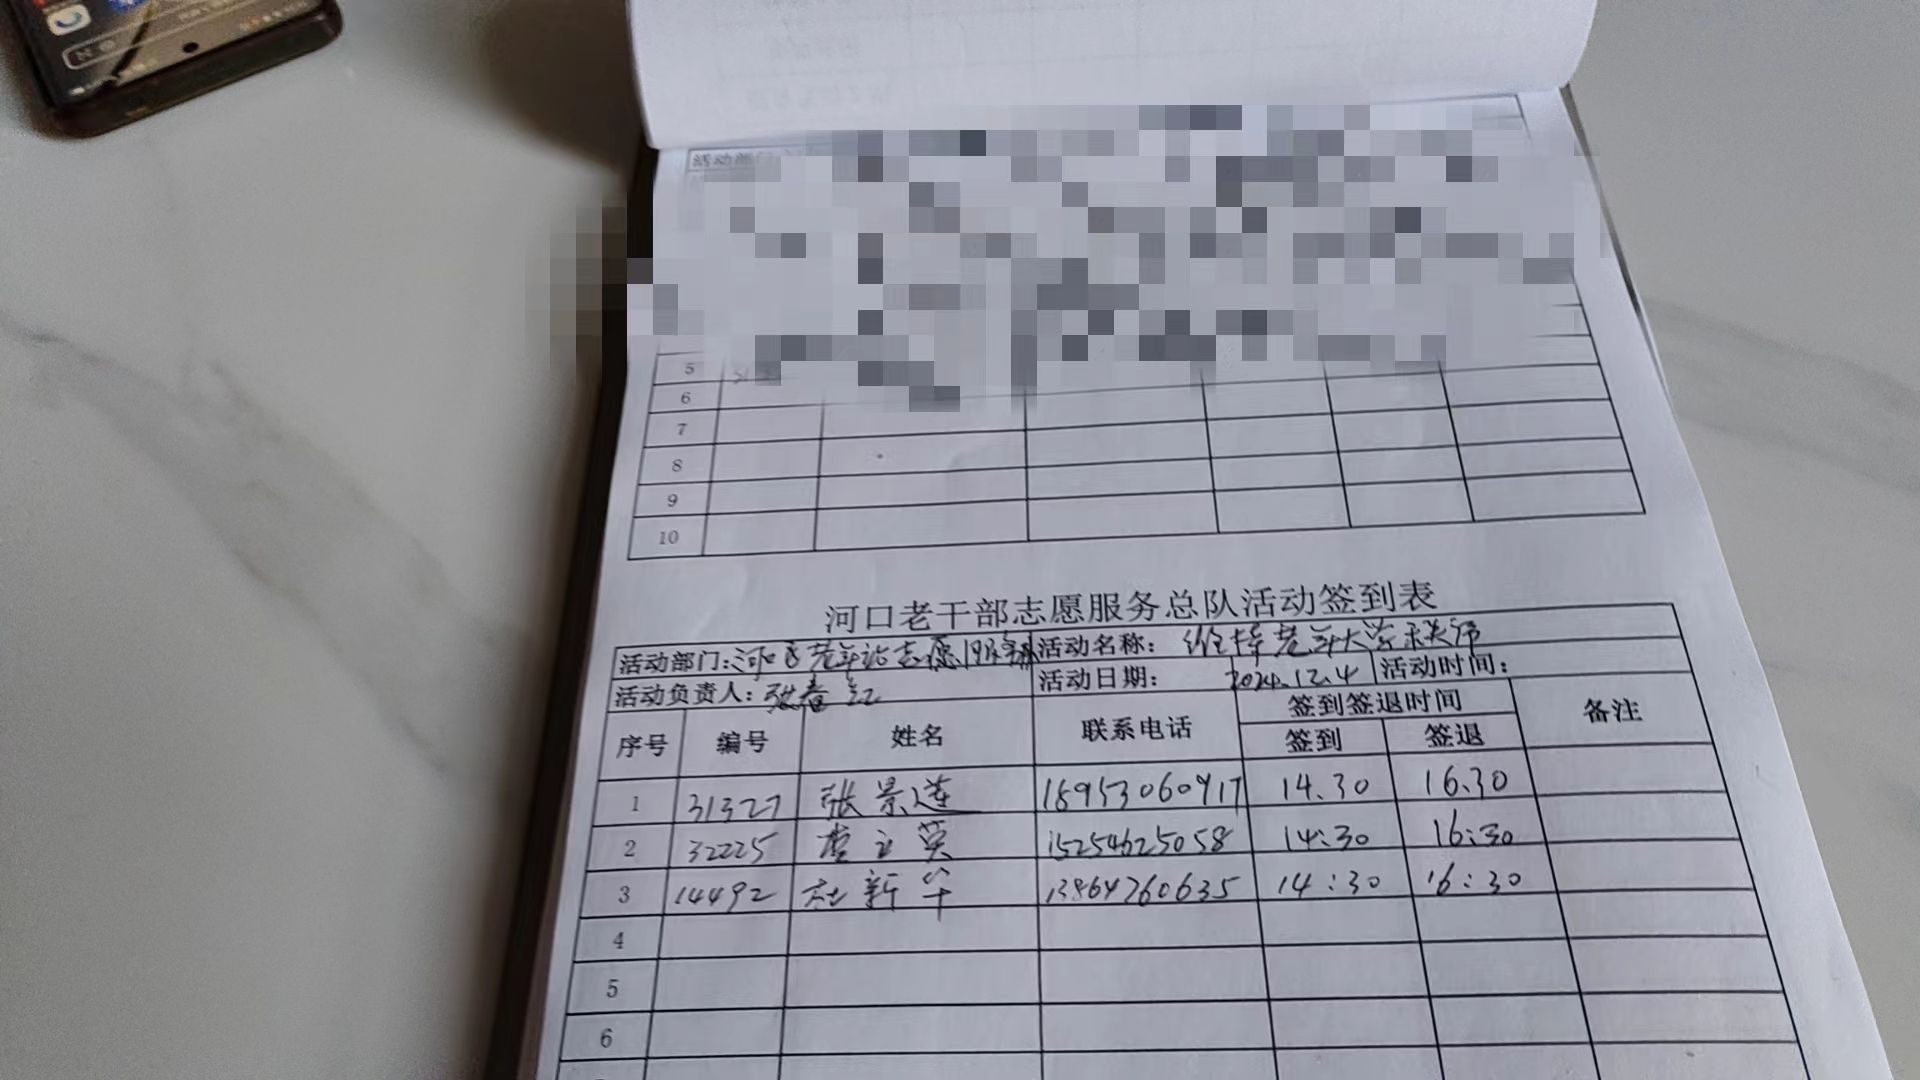 活动部门
5
6
7
8
9
10
河口老干部志愿服务总队活动签到表
活动部门:河口区老年活志愿服务 活动名称: 维持老年大学秩序
活动负责人:张春红 活动日期: 2024.12.4 活动时间:
序号 编号 姓名 联系电话 签到签退时间 备注
签到 签退
1 31327 张景莲 18953060917 14.30 16.30
2 32225 李立英 15254625058 14:30 16:30
3 14492 杜新华 13864760635 14:30 16:30
4
5
6